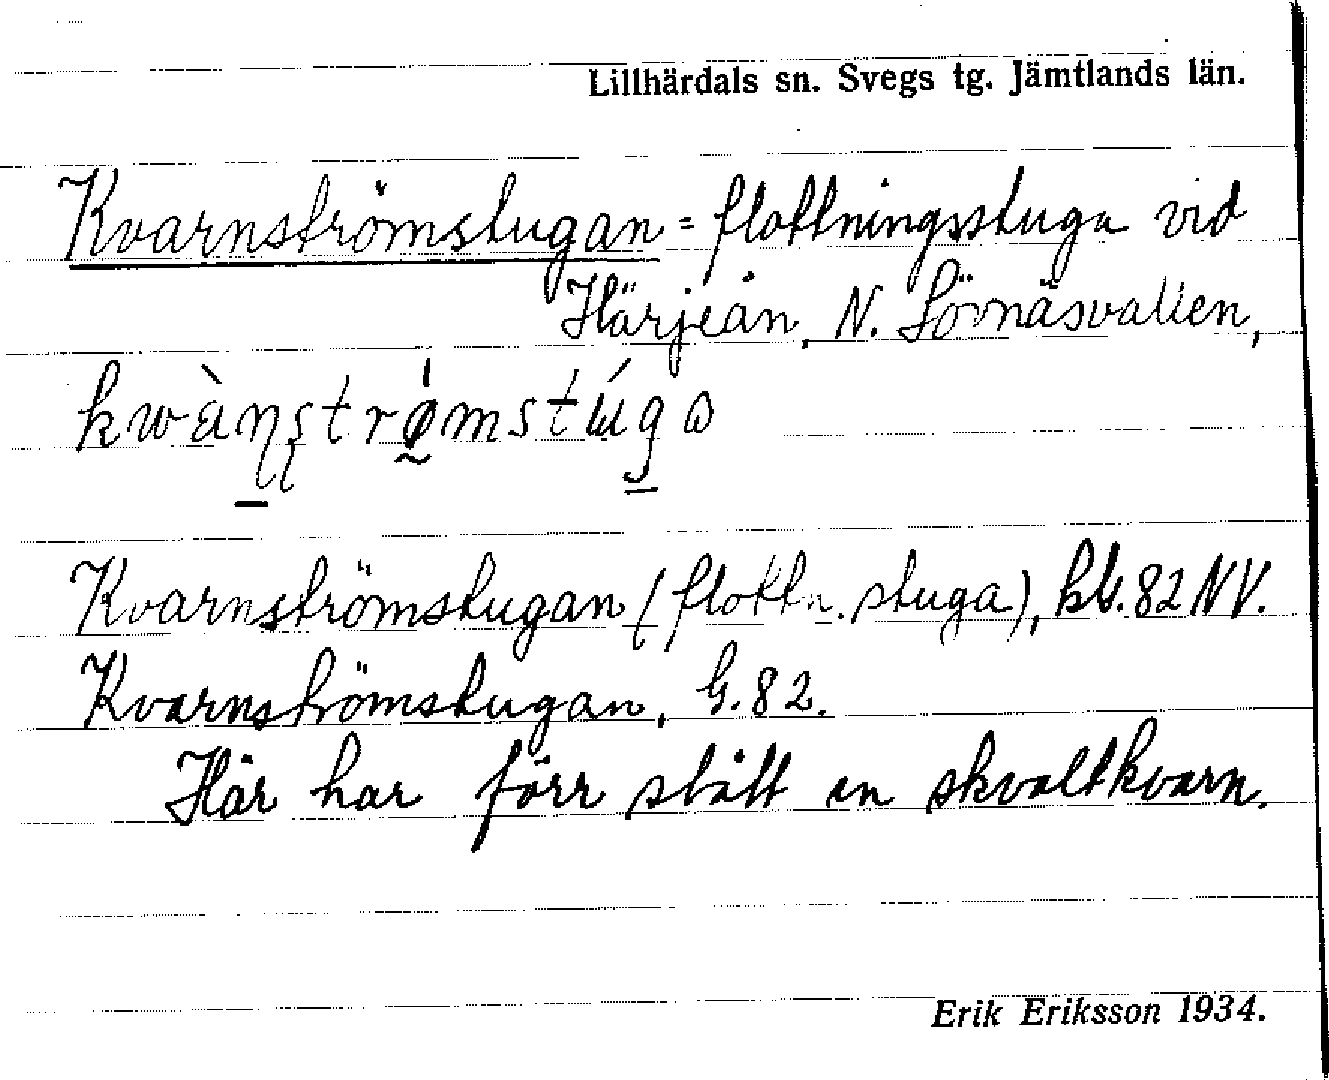 Lillhärdals sn. Svegs tg. Jämtlands län.
Kvarnströmstugan = flottningsstuga vid
Härjeån, N. Lövnäsvallen,
kwàɳʂtrømstúga
Kvarnströmstugan (flottn. stuga), kbl. 82 NV.
Kvarnströmstugan, G. 82.
Här har förr stått en skvaltkvarn.
Erik Eriksson 1934.